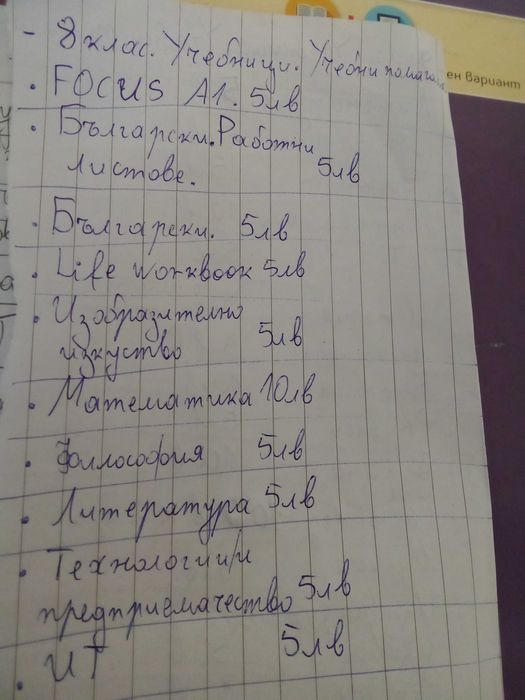 - 8 клас. Учебници. Учебни помагал
ен вариант
· FOCUS A1. 5лв
· Български. Работни
листове. 5лв
· Български. 5лв
· Life workbook 5лв
· Изобразително
изкуство 5лв
· Математика 10лв
· Философия 5лв
· Литература 5лв
· Технологии и
предприемачество 5лв
· ИТ 5лв